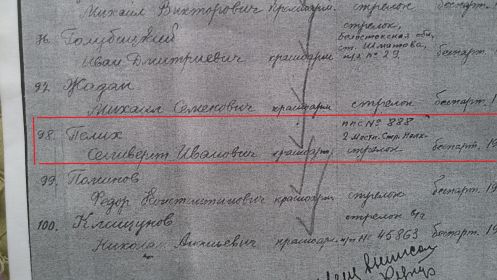 Михаил Викторович красноарм. стрелок беспарт.
96. Голубицкий стрелок,
Белостокская обл,
ст. Шматова,
Иван Дмитриевич красноарм п/я № 29, беспарт. 1
97. Жадан
Михаил Семенович красноарм. стрелок беспарт. 1
98. Полих ппс № 888
2 Моск. Стр. Полк
Селиверст Иванович красноарм. стрелок беспарт. 19
99. Логинов
Федор Константинович красноарм. стрелок беспарт. 19
100. Клищунов стрелок
Николай красноарм. п/п № 45863 беспарт. 19